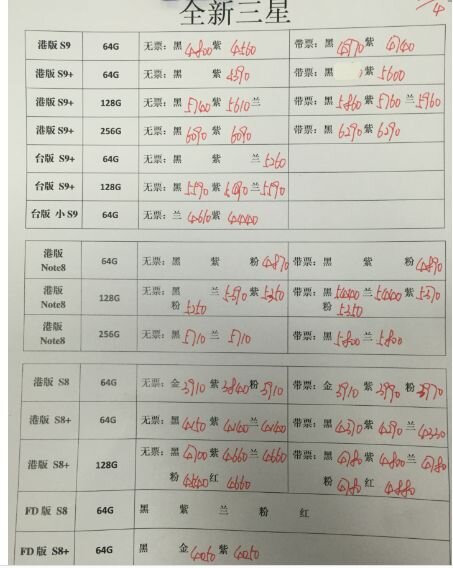 全新三星
港版 S9 64G 无票：黑 4800 紫 4560 带票：黑 4970 紫 4740
港版 S9+ 64G 无票：黑 紫 4590 带票：黑 紫 5600
港版 S9+ 128G 无票：黑 5740 紫 5610 兰 带票：黑 5860 紫 5760 兰 5960
港版 S9+ 256G 无票：黑 6090 紫 6090 带票：黑 6290 紫 6290
台版 S9+ 64G 无票：黑 紫 兰 5260
台版 S9+ 128G 无票：黑 5590 紫 兰 5590
台版 小 S9 64G 无票：兰 4610 紫 4440
港版 Note8 64G 无票：黑 紫 粉 4870 带票：黑 紫 粉 4890
港版 Note8 128G 无票：黑 兰 5390 紫 5350 带票：黑 5440 兰 5440 紫 5370
粉 5250 粉 5350
港版 Note8 256G 无票：黑 5710 兰 5710 带票：黑 5800 兰 5800
港版 S8 64G 无票：金 3910 紫 3840 粉 3910 带票：金 3910 紫 3990 粉 3970
港版 S8+ 64G 无票：黑 4150 紫 4140 兰 4140 带票：黑 4370 紫 4290 兰 4330
港版 S8+ 128G 无票：黑 4700 紫 4660 兰 4660 带票：黑 4780 紫 4800 兰 4780
粉 4540 红 4660 粉 4780 红 4880
FD 版 S8 64G 黑 紫 兰 粉 红
FD 版 S8+ 64G 黑 金 4050 紫 4050